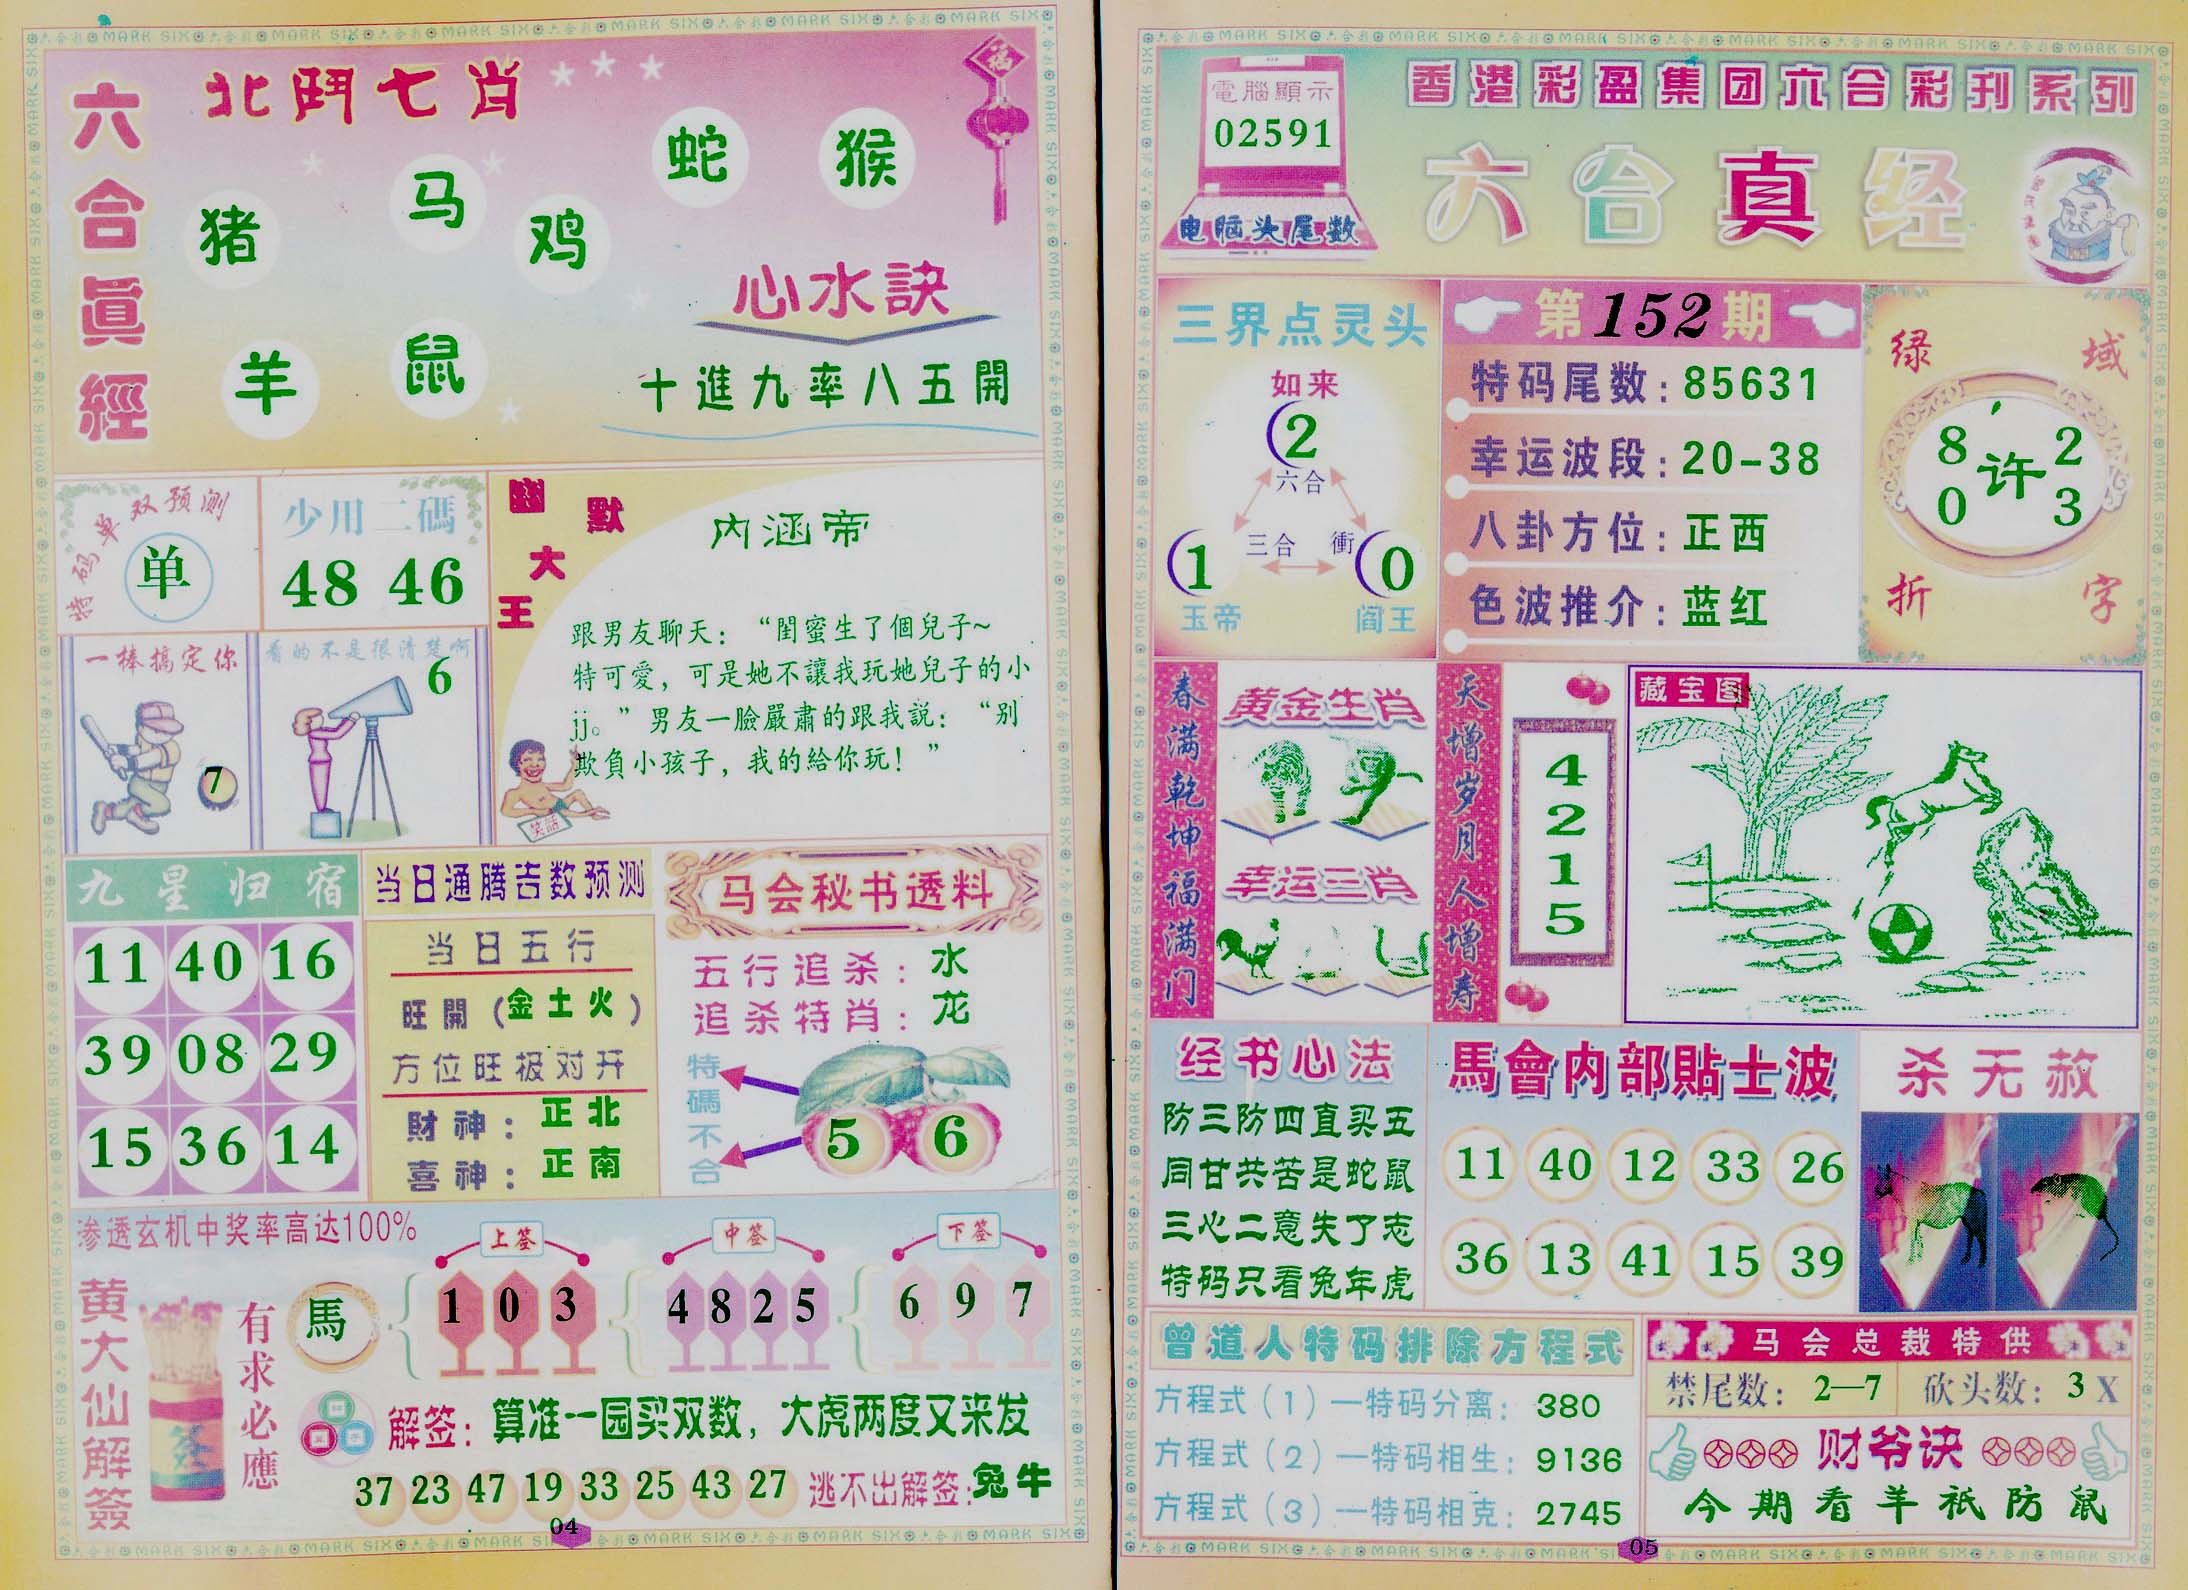 六合眞經
北鬥七肖
猪
马
鸡
蛇
猴
羊
鼠
心水訣
十進九率八五開
特码单双预测
单
少用二碼
48 46
一棒搞定你
7
看的不是很清楚啊
6
幽默大王
内涵帝
跟男友聊天：“閨蜜生了個兒子~
特可愛，可是她不讓我玩她兒子的小
jj。”男友一臉嚴肅的跟我説：“别
欺負小孩子，我的給你玩！”
笑話
九星归宿
11 40 16
39 08 29
15 36 14
当日通腾吉数预测
当日五行
旺開（金土火）
方位旺极对开
財神：正北
喜神：正南
马会秘书透料
五行追杀：水
追杀特肖：龙
特碼不合
5 6
渗透玄机中奖率高达100%
黄大仙解簽
有求必應
馬
上签
1 0 3
中签
4 8 2 5
下签
6 9 7
解签：算准一园买双数，大虎两度又来发
37 23 47 19 33 25 43 27 逃不出解签：兔牛
04
電腦顯示
02591
电脑头尾数
香港彩盈集团六合彩刊系列
六合真经
三界点灵头
如来
2
六合
三合
衝
1
0
玉帝
阎王
第152期
特码尾数：85631
幸运波段：20-38
八卦方位：正西
色波推介：蓝红
绿域
8 2
许
0 3
折字
春满乾坤福满门
黄金生肖
幸运三肖
天增岁月人增寿
4
2
1
5
藏宝图
经书心法
防三防四直买五
同甘共苦是蛇鼠
三心二意失了志
特码只看兔年虎
馬會内部貼士波
11 40 12 33 26
36 13 41 15 39
杀无赦
曾道人特码排除方程式
方程式（1）—特码分离：380
方程式（2）—特码相生：9136
方程式（3）—特码相克：2745
马会总裁特供
禁尾数：2—7
砍头数：3X
财爷诀
今期看羊祇防鼠
05